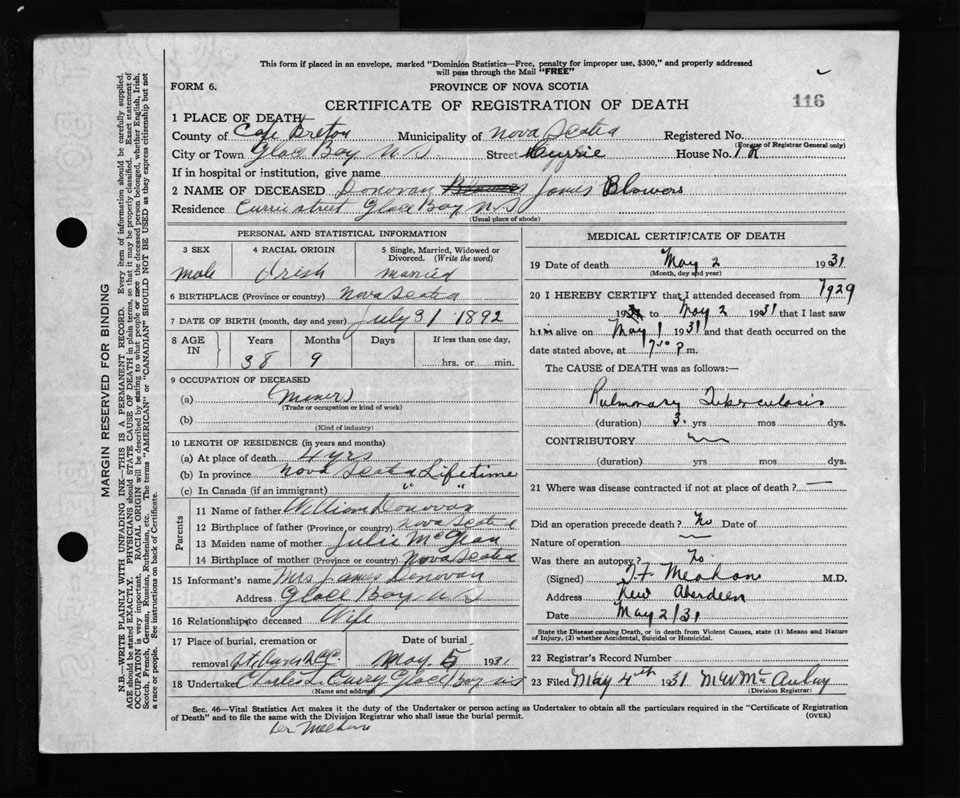 This form if placed in an envelope, marked "Dominion Statistics—Free, penalty for improper use, $300," and properly addressed
will pass through the Mail "FREE"
FORM 6.
PROVINCE OF NOVA SCOTIA
116
CERTIFICATE OF REGISTRATION OF DEATH
1 PLACE OF DEATH
County of Cape Breton Municipality of Nova Scotia Registered No.
(For use of Registrar General only)
City or Town Glace Bay N.S. Street Currie House No.
If in hospital or institution, give name
2 NAME OF DECEASED Donovan James Blowers
Residence Currie Street Glace Bay N S
(Usual place of abode)
PERSONAL AND STATISTICAL INFORMATION
3 SEX 4 RACIAL ORIGIN 5 Single, Married, Widowed or Divorced. (Write the word)
Male Irish Married
6 BIRTHPLACE (Province or country) Nova Scotia
7 DATE OF BIRTH (month, day and year) July 31 1892
8 AGE IN Years Months Days If less than one day,
38 9 hrs. or min.
9 OCCUPATION OF DECEASED
(a) (Miner)
(Trade or occupation or kind of work)
(b)
(Kind of industry)
10 LENGTH OF RESIDENCE (in years and months)
(a) At place of death 4 yrs
(b) In province Nova Scotia Lifetime
(c) In Canada (if an immigrant) " "
Parents
11 Name of father William Donovan
12 Birthplace of father (Province or country) Nova Scotia
13 Maiden name of mother Julia
14 Birthplace of mother (Province or country) Nova Scotia
15 Informant's name Mrs James Donovan
Address Glace Bay N S
16 Relationship to deceased Wife
17 Place of burial, cremation or Date of burial
removal May 5 1931
18 Undertaker Charles L. Curry Glace Bay N S
(Name and address)
MEDICAL CERTIFICATE OF DEATH
19 Date of death May 2 1931
(Month, day and year)
20 I HEREBY CERTIFY that I attended deceased from 1929
19 to May 2 1931 that I last saw
him alive on May 1 1931 and that death occurred on
date stated above, at p.m.
The CAUSE of DEATH was as follows:—
Pulmonary Tuberculosis
(duration) 3 yrs mos dys.
CONTRIBUTORY
(duration) yrs mos dys.
21 Where was disease contracted if not at place of death? —
Did an operation precede death? No Date of
Nature of operation
Was there an autopsy? No
(Signed) M.D.
Address New Aberdeen
Date May 2/31
State the Disease causing Death, or in death from Violent Causes, state (1) Means and Nature
of Injury, (2) whether Accidental, Suicidal or Homicidal.
22 Registrar's Record Number
23 Filed May 4th 1931
(Division Registrar)
Sec. 46—Vital Statistics Act makes it the duty of the Undertaker or person acting as Undertaker to obtain all the particulars required in the "Certificate of Registration
of Death" and to file the same with the Division Registrar who shall issue the burial permit.
(OVER)
MARGIN RESERVED FOR BINDING
N.B.—WRITE PLAINLY WITH UNFADING INK—THIS IS A PERMANENT RECORD. Every item of information should be carefully supplied.
AGE should be stated EXACTLY. PHYSICIANS should STATE CAUSE OF DEATH in plain terms, so that it may be properly classified. Exact statement of
OCCUPATION is very important. RACIAL ORIGIN will be described by stating to what people or race the deceased person belonged, whether English, Irish,
Scotch, French, German, Russian, Ruthenian, etc. The terms "AMERICAN" or "CANADIAN" SHOULD NOT BE USED as they express citizenship but not
a race or people. See instructions on back of Certificate.